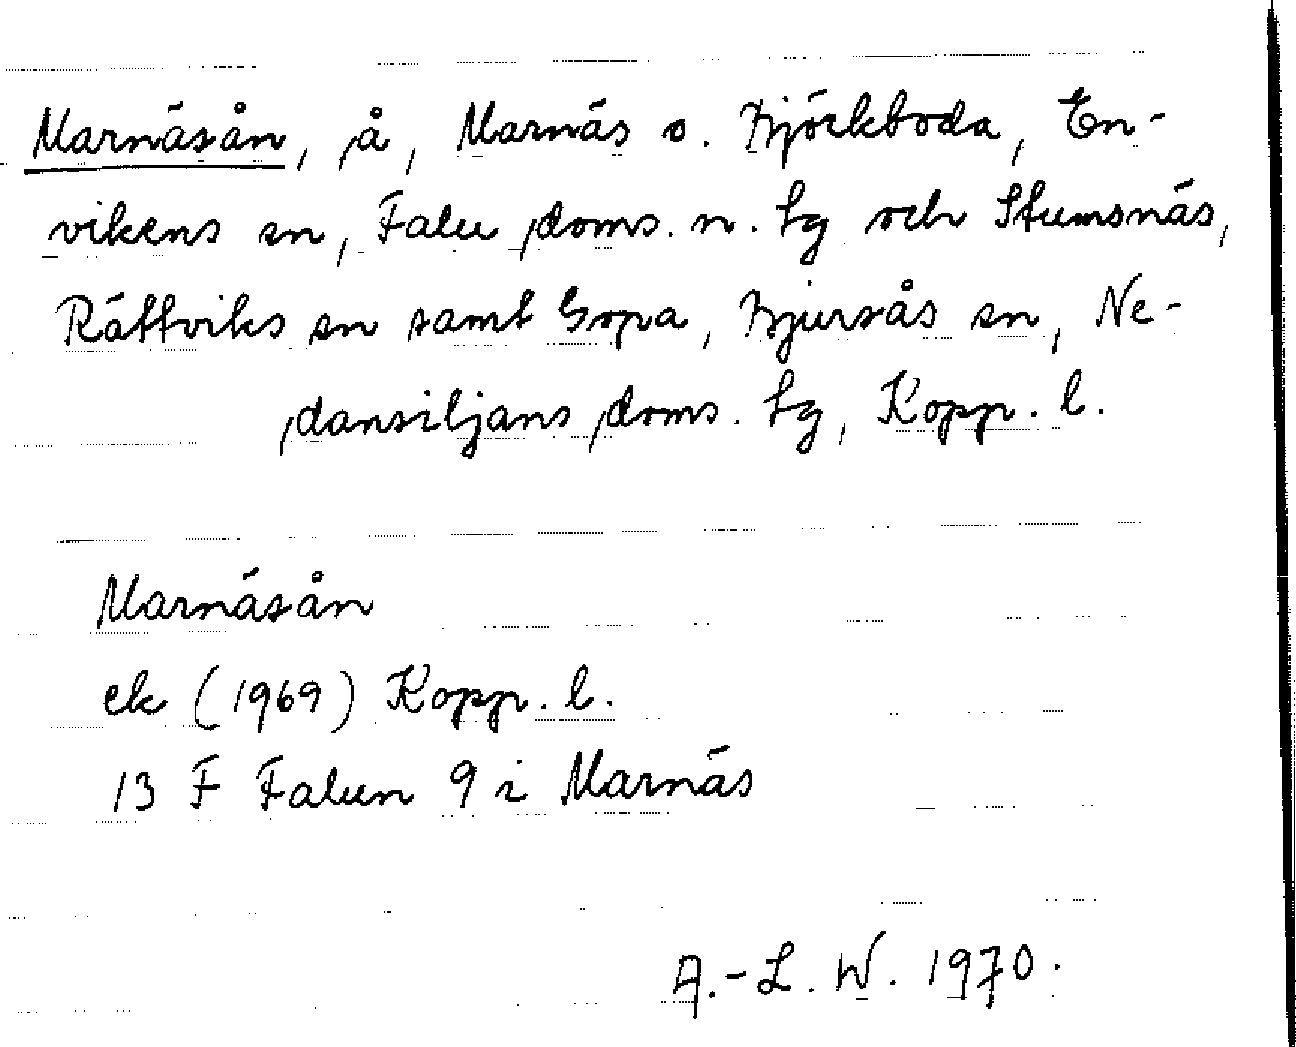 Marnäsån, å, Marnäs o. Björkboda, En-
vikens sn, Falu doms. n. tg och Stumsnäs,
Rättviks sn samt Gopa, Bjursås sn, Ne-
dansiljans doms. tg, Kopp. l.
Marnäsån
ek (1969) Kopp. l.
13 F Falun 9 i Marnäs
A.-L. W. 1970.